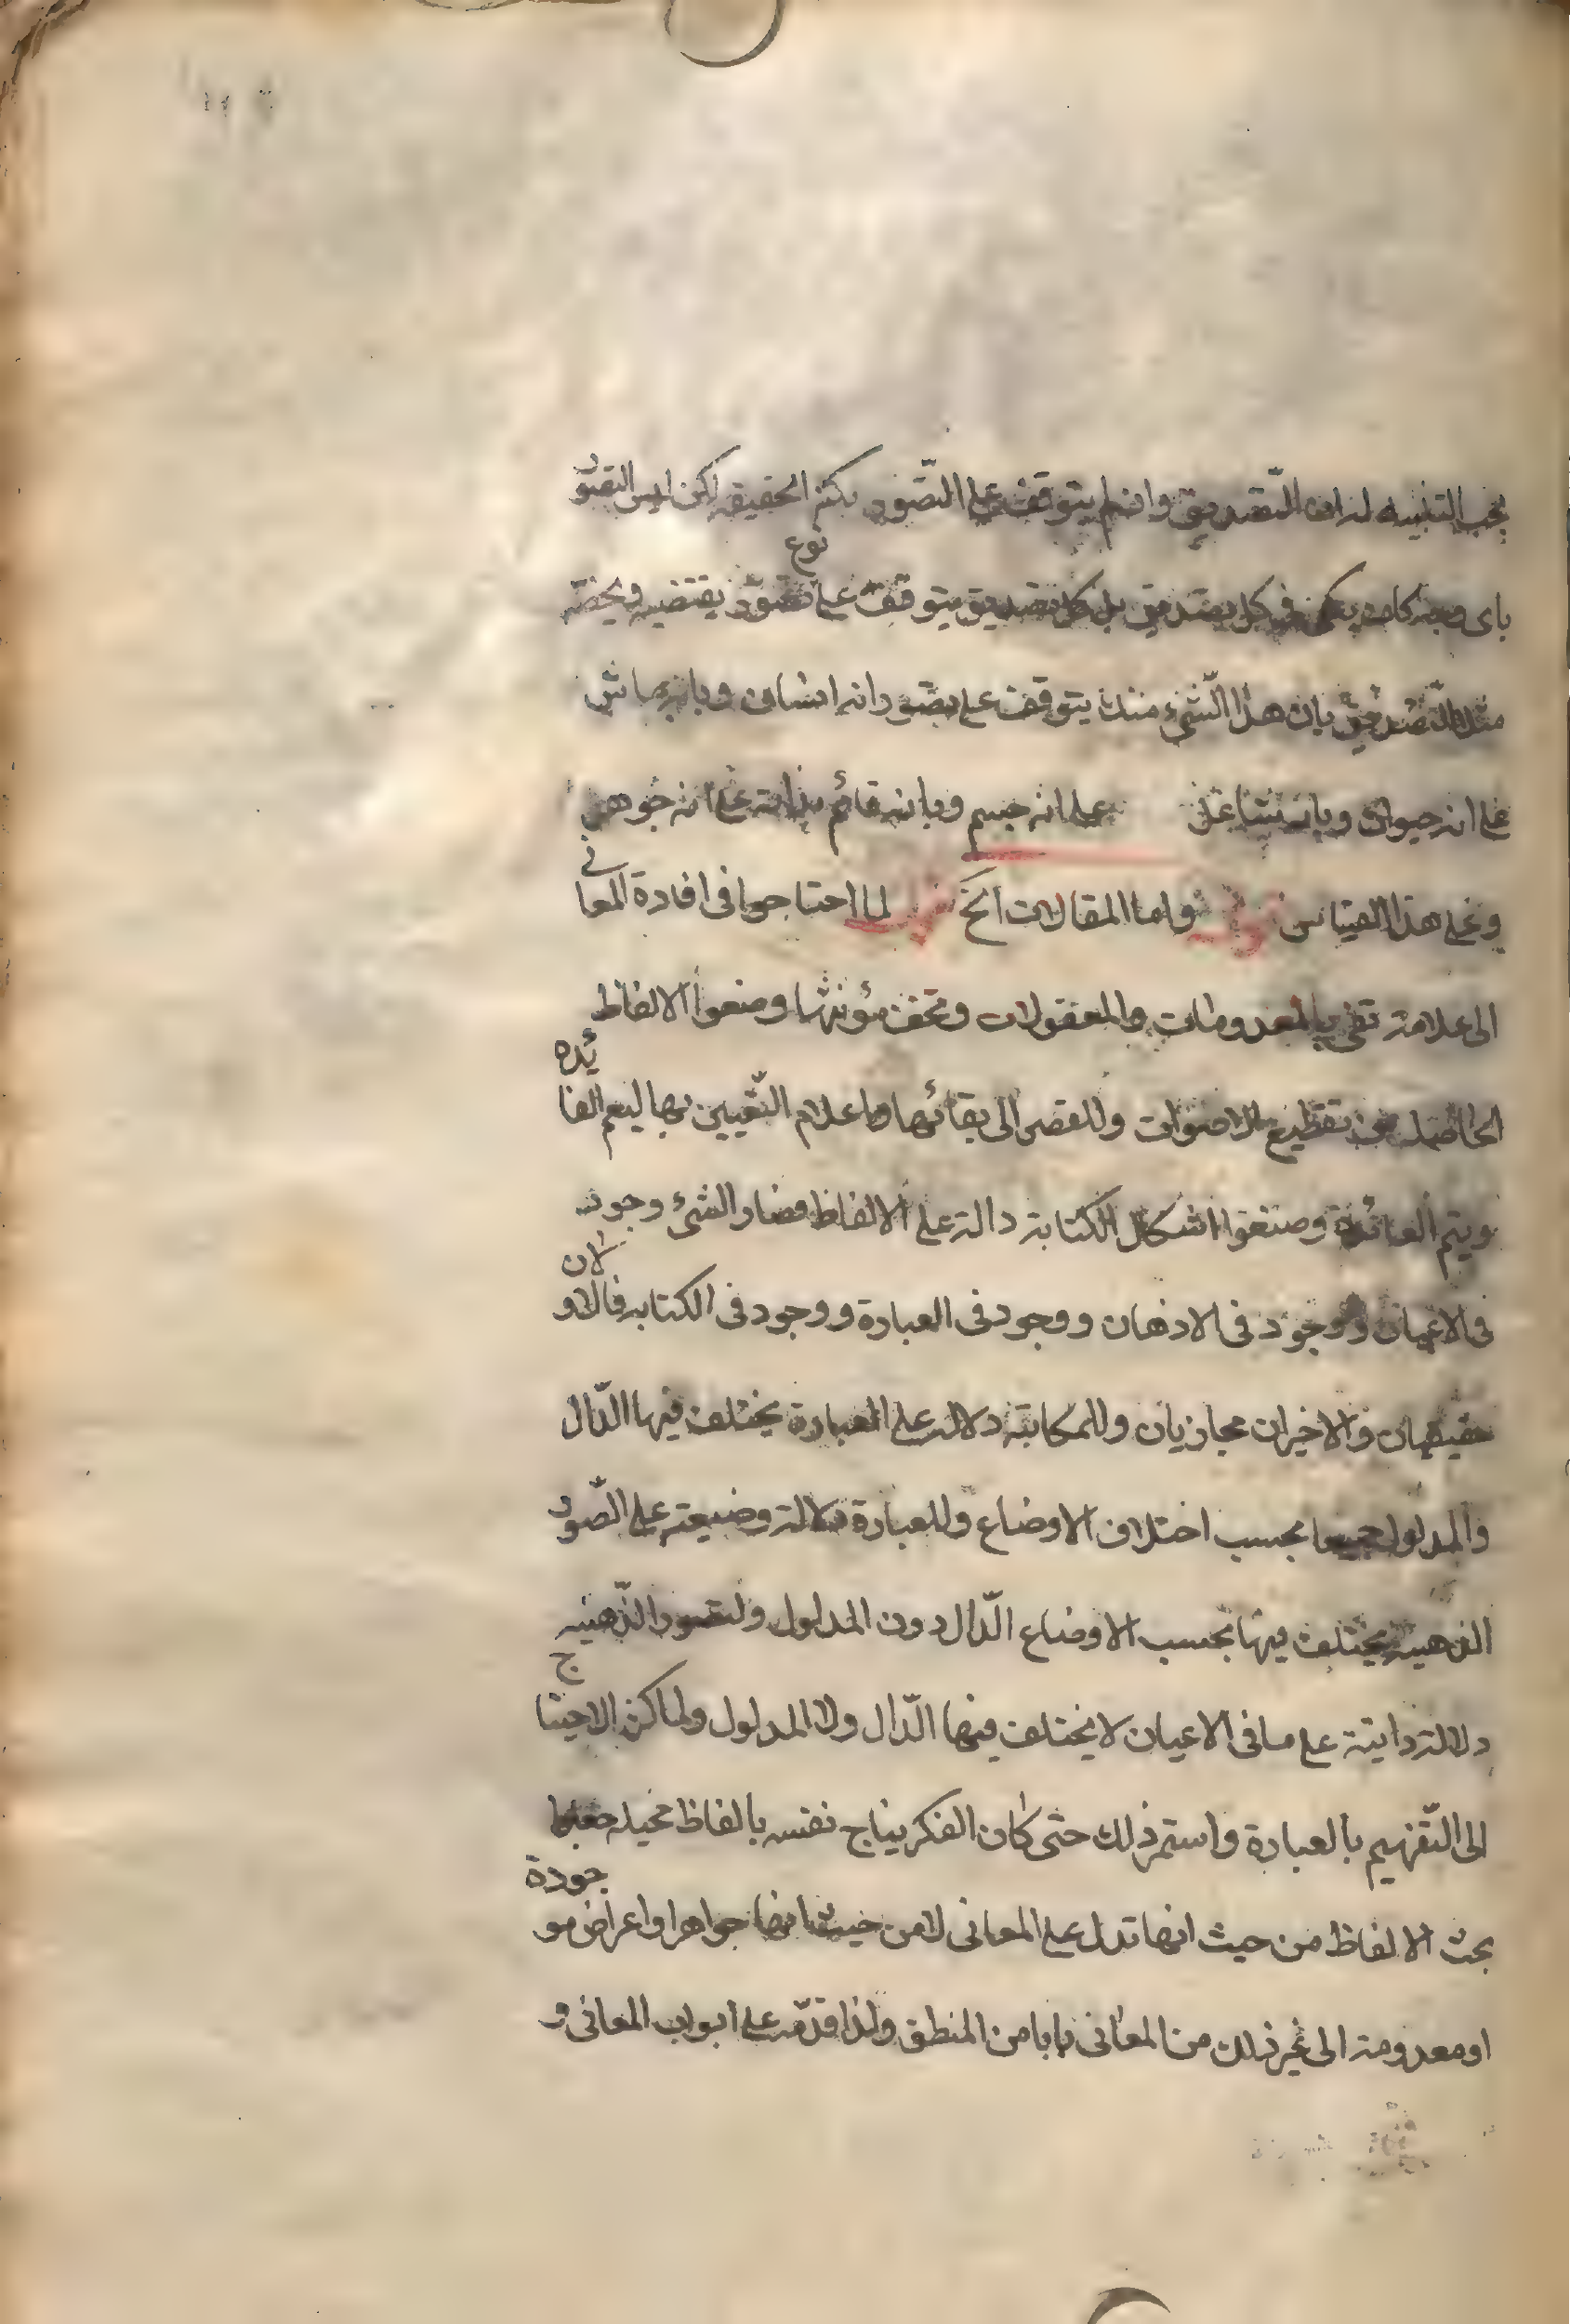 يجب التنبيه له ان التصديق وان لم يتوقف على التصور بكنه الحقيقه لكن ليس التصور
باى وجه كان يكفى فى كل تصديق بل كل تصديق يتوقف على نوع تصور يقتضيه ويخصه
مثلا التصديق بان هذا الشئ متوقف على تصور انه انسان وبانه ماش
على انه حيوان وبانه شاغل على انه جسم وبانه قائم بذاته على انه جوهر
وعلى هذا القياس واما المقالات الخ لما احتاجوا فى افادة المعانى
الى علامة تفى بالمعدومات والمعقولات وتخف مؤنتها وضعوا الالفاظ
الحاصله من تقطيع الاصوات وللقصر الى بقائها واعلام الغيبين بها ليعم الفائده
ويتم العائدة وضعوا اشكال الكتابة دالة على الالفاظ فصار الشئ وجود
فى الاعيان ووجود فى الاذهان ووجود فى العبارة ووجود فى الكتابه فالاولان
حقيقيان والاخيران مجازيان وللكتابة دلاله على العبارة يختلف فيها الدّال
والمدلول جميعا بحسب اختلاف الاوضاع وللعبارة دلالة وضعيته على الصّور
الذهنيه يختلف فيها بحسب الاوضاع الدّال دون المدلول وللصور الذّهنيه
دلالة ذاتية على ما فى الاعيان لا يختلف فيها الدّال ولا المدلول ولما كثر الاحتياج
الى التّفهيم بالعبارة واستمر ذلك حتى كان الفكر يناجى نفسه بالفاظ مخيله جعلوا
بحث الالفاظ من حيث انها تدل على المعانى لا من حيث انها جواهر او اعراض موجودة
او معدومة الى غير ذلك من المعانى بابا من المنطق ولذا قدّمه على ابواب المعانى و